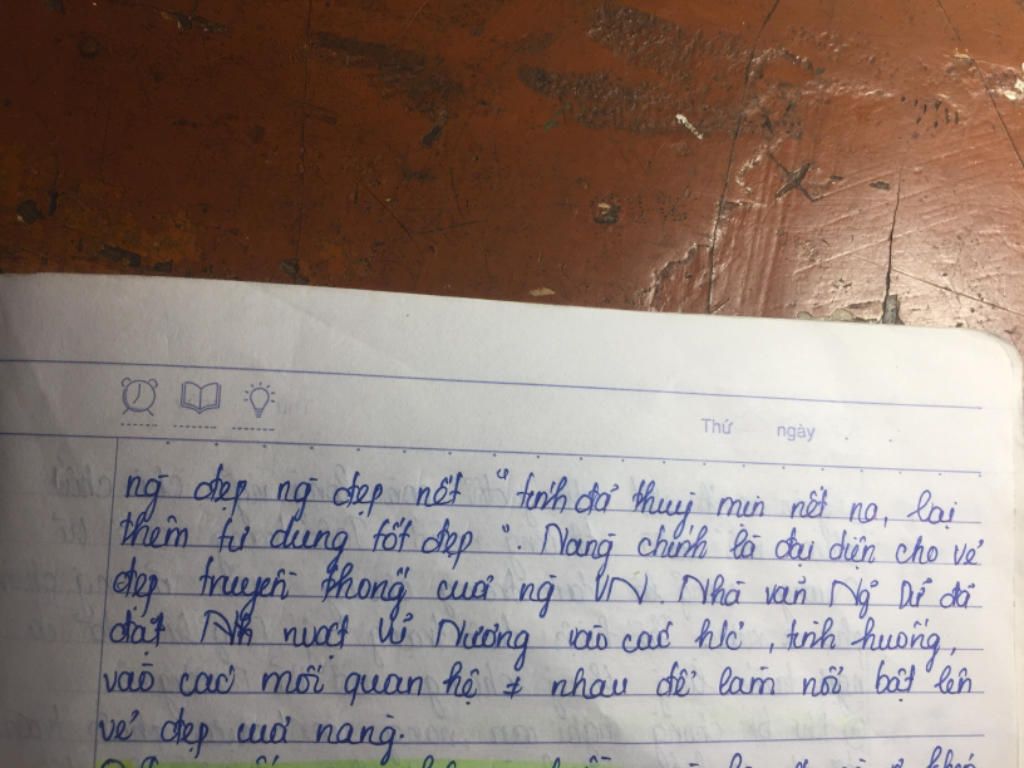 Thứ ngày
ng đẹp ng đẹp nết " tính đã thuỳ mị nết na, lại
thêm tư dung tốt đẹp ". Nàng chính là đại diện cho vẻ
đẹp truyền thống của ng VN. Nhà văn Ng Dữ đã
đặt Nh vật Vũ Nương vào các h/c , tình huống,
vào các mối quan hệ ≠ nhau để làm nổi bật lên
vẻ đẹp của nàng.